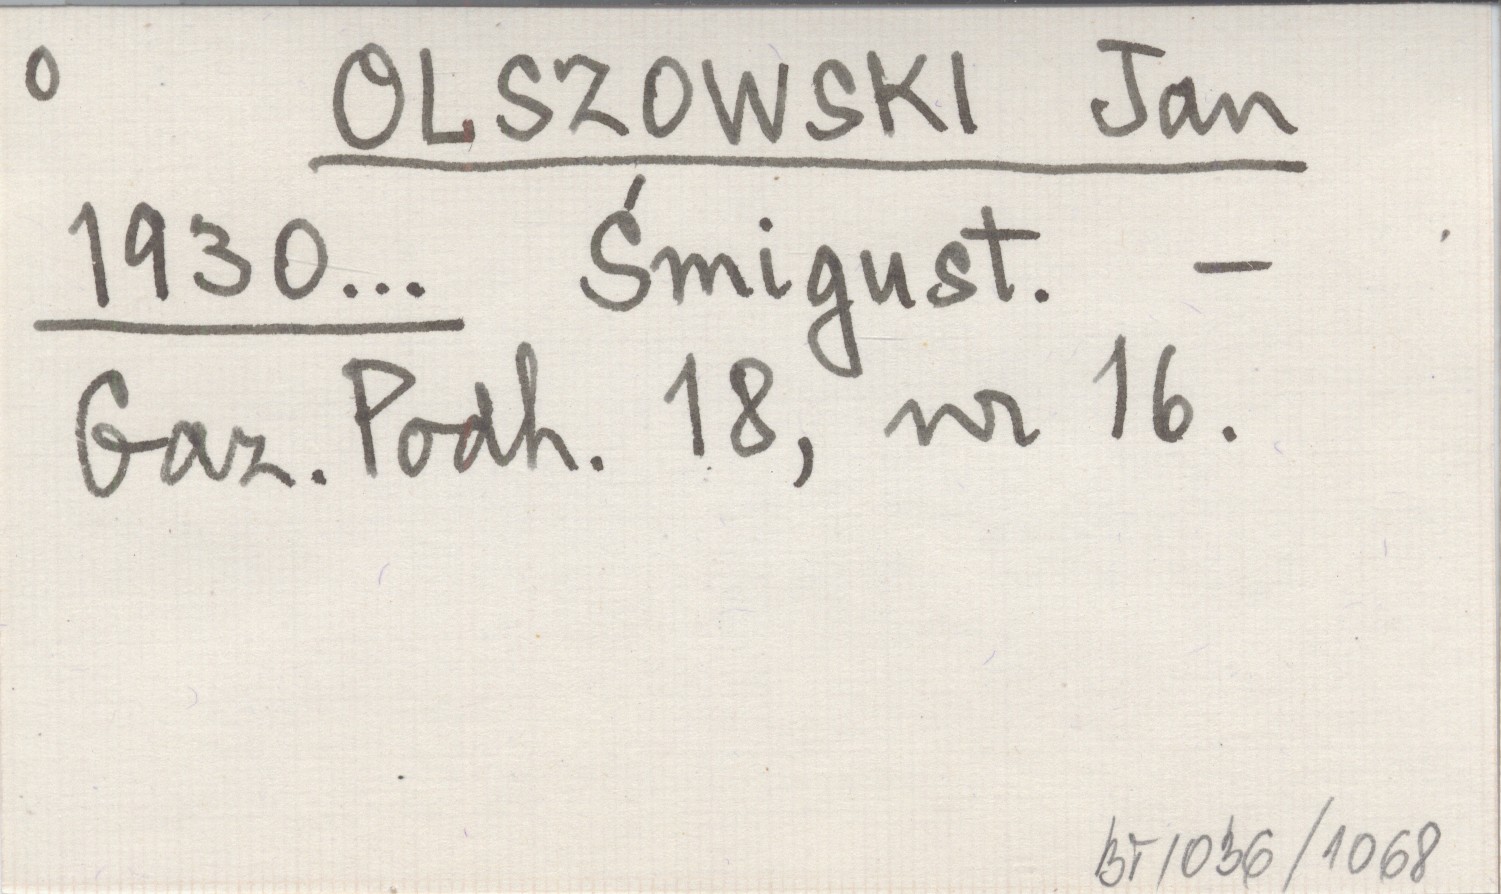 O OLSZOWSKI Jan
1930... Śmigust. –
Gaz. Podh. 18, nr 16.
BT/036/1068